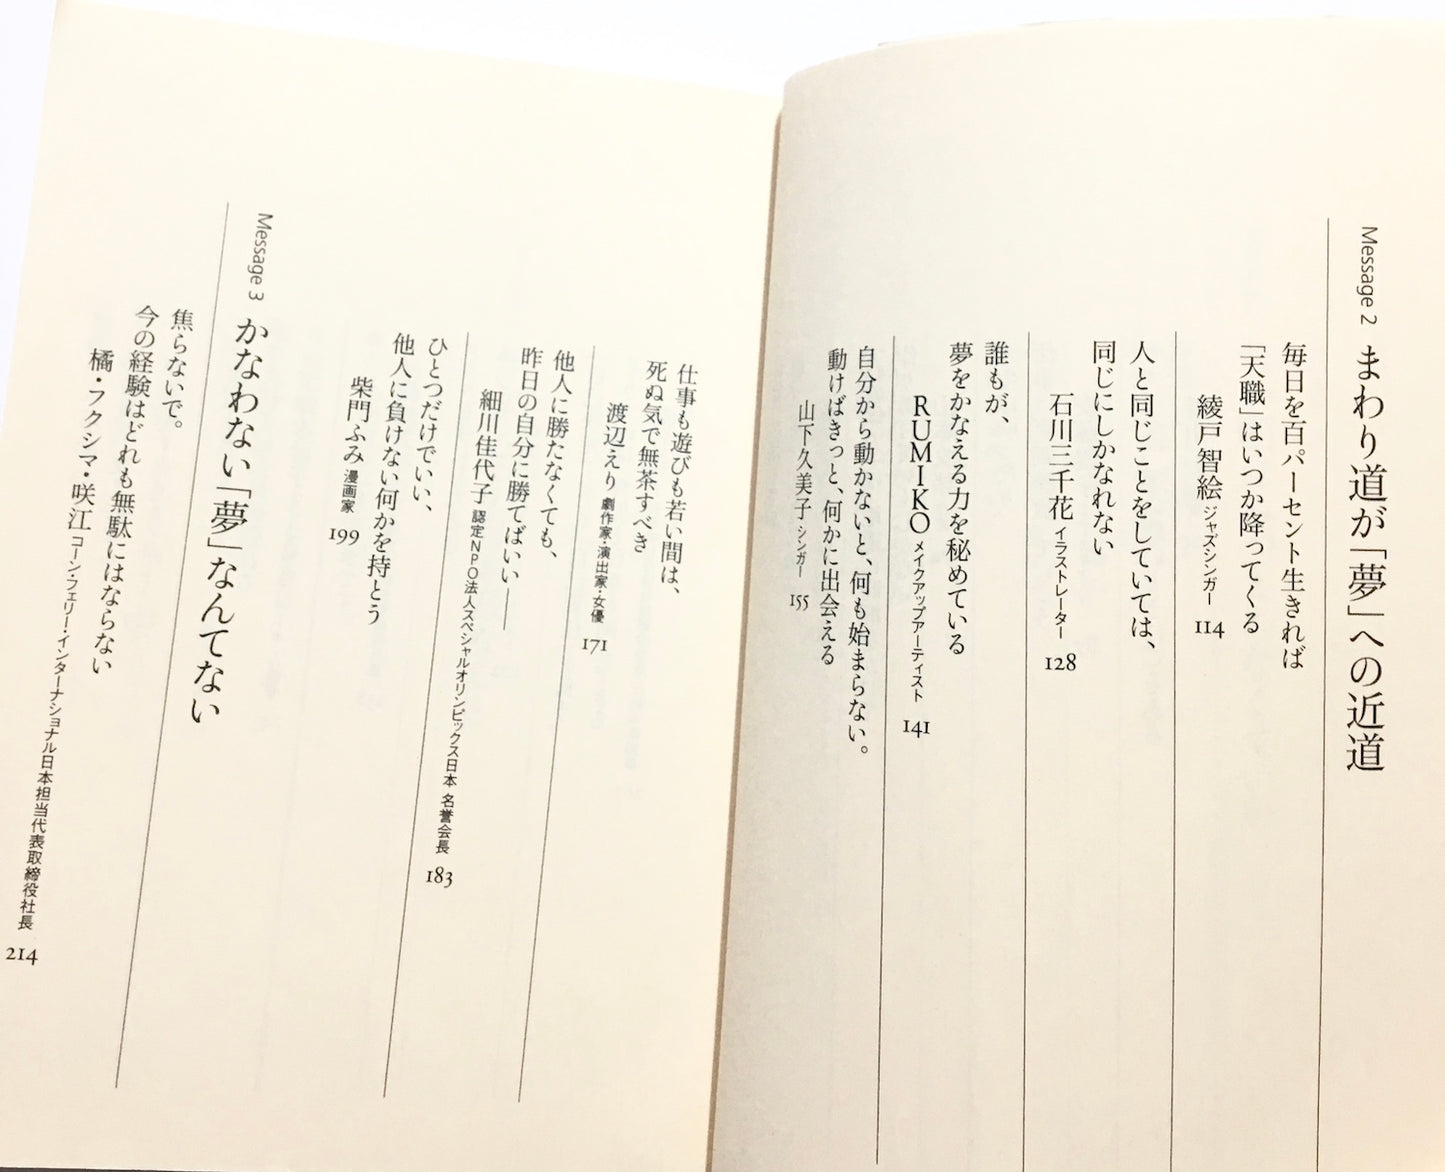 Message 2 まわり道が「夢」への近道
毎日を百パーセント生きれば
「天職」はいつか降ってくる
綾戸智絵 ジャズシンガー 114
人と同じことをしていては、
同じにしかなれない
石川三千花 イラストレーター 128
誰もが、
夢をかなえる力を秘めている
RUMIKO メイクアップアーティスト 141
自分から動かないと、何も始まらない。
動けばきっと、何かに出会える
山下久美子 シンガー 155
仕事も遊びも若い間は、
死ぬ気で無茶すべき
渡辺えり 劇作家・演出家・女優 171
他人に勝たなくても、
昨日の自分に勝てばいい――
細川佳代子 認定NPO法人スペシャルオリンピックス日本 名誉会長 183
ひとつだけでいい、
他人に負けない何かを持とう
柴門ふみ 漫画家 199
Message 3 かなわない「夢」なんてない
焦らないで。
今の経験はどれも無駄にはならない
橘・フクシマ・咲江 コーン・フェリー・インターナショナル日本担当代表取締役社長 214